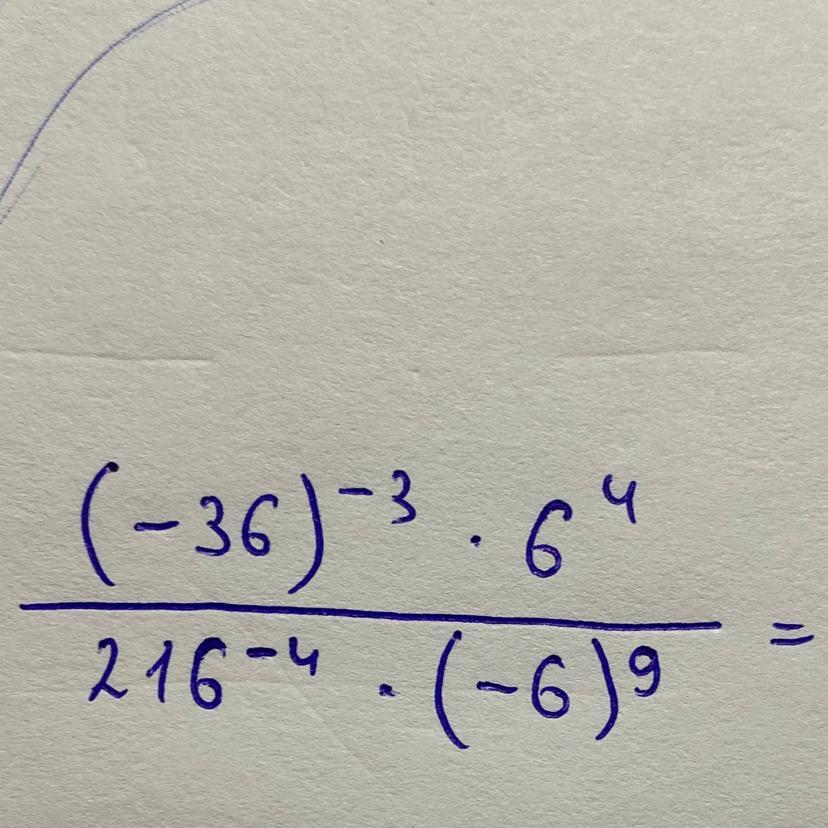 (-36)⁻³ · 6⁴
216⁻⁴ · (-6)⁹ =